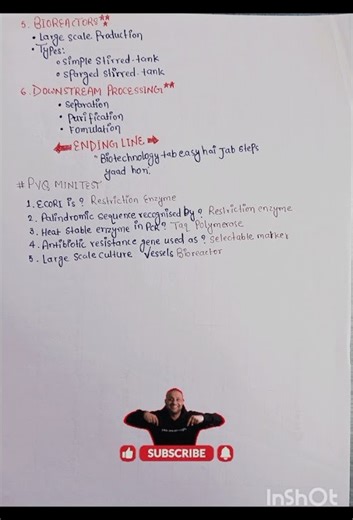 5. BIOREACTORS**
• Large Scale Production
• Types:
o simple stirred-tank
o sparged stirred-tank
6. DOWNSTREAM PROCESSING**
• Separation
• Purification
• Fomulation
ENDING LINE
"Biotechnology tab easy hai Jab steps
yaad hon.
# PYQ MINI TEST
1. ECORI is ? Restriction Enzyme
2. Palindromic Sequence recognised by ? Restriction enzyme
3. Heat Stable enzyme in PCR ? Taq Polymerase
4. Antibiotic resistance gene used as ? Selectable marker
5. Large Scale culture Vessels Bioreactor
SUBSCRIBE
InShOt